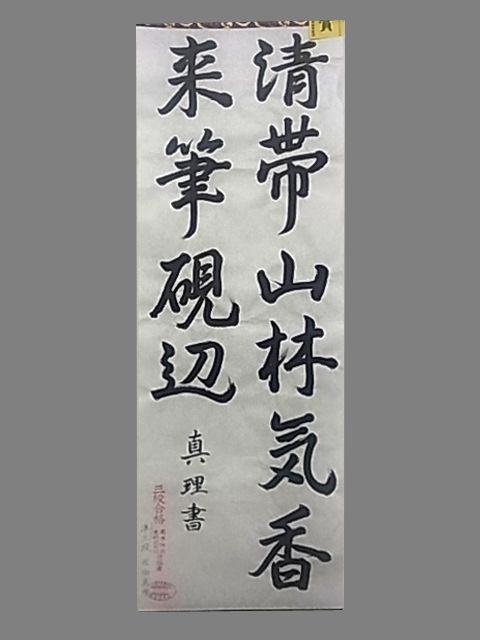 清帯山林気香
来筆硯辺
真理書
三段合格